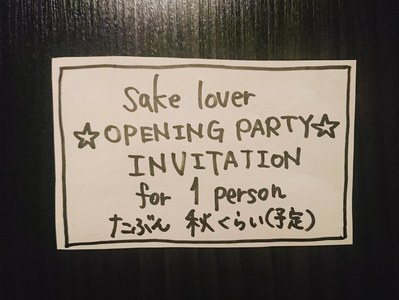 Sake lover
☆OPENING PARTY☆
INVITATION
for 1 person
たぶん 秋くらい(予定)